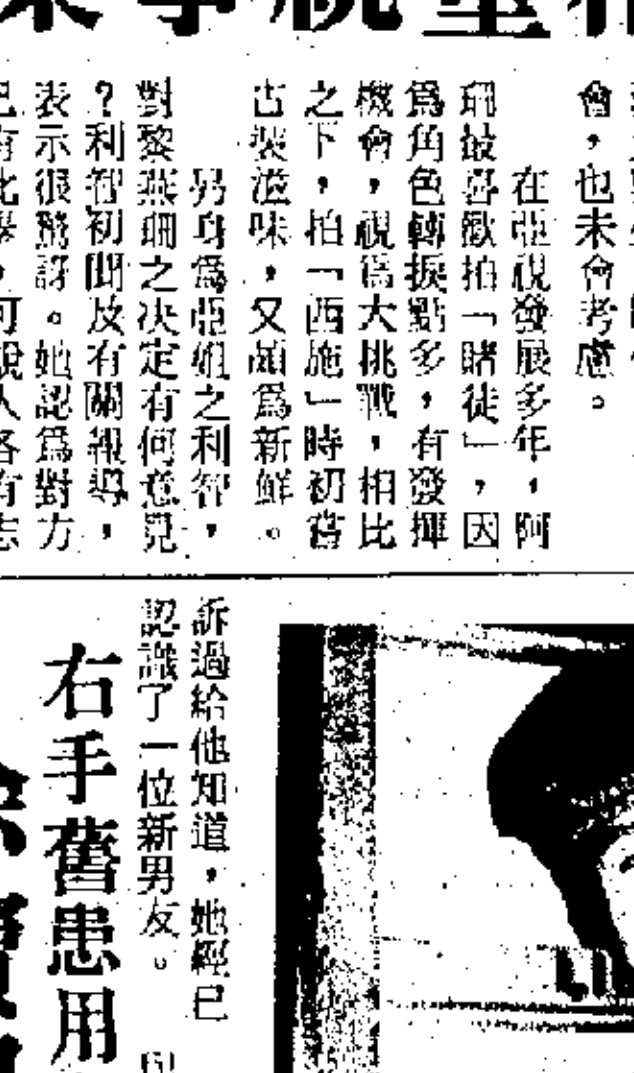 會，也未會考慮。
在亞視發展多年，阿
珊最喜歡拍「賭徒」，因
爲角色轉捩點多，有發揮
機會，視爲大挑戰，相比
之下，拍「西施」時初嘗
古裝滋味，又頗爲新鮮。
另身爲亞姐之利智，
對黎燕珊之決定有何意見
？利智初聞及有關報導，
表示很驚訝。她認爲對方
訴過給他知道，她經已
認識了一位新男友。
右手舊患用